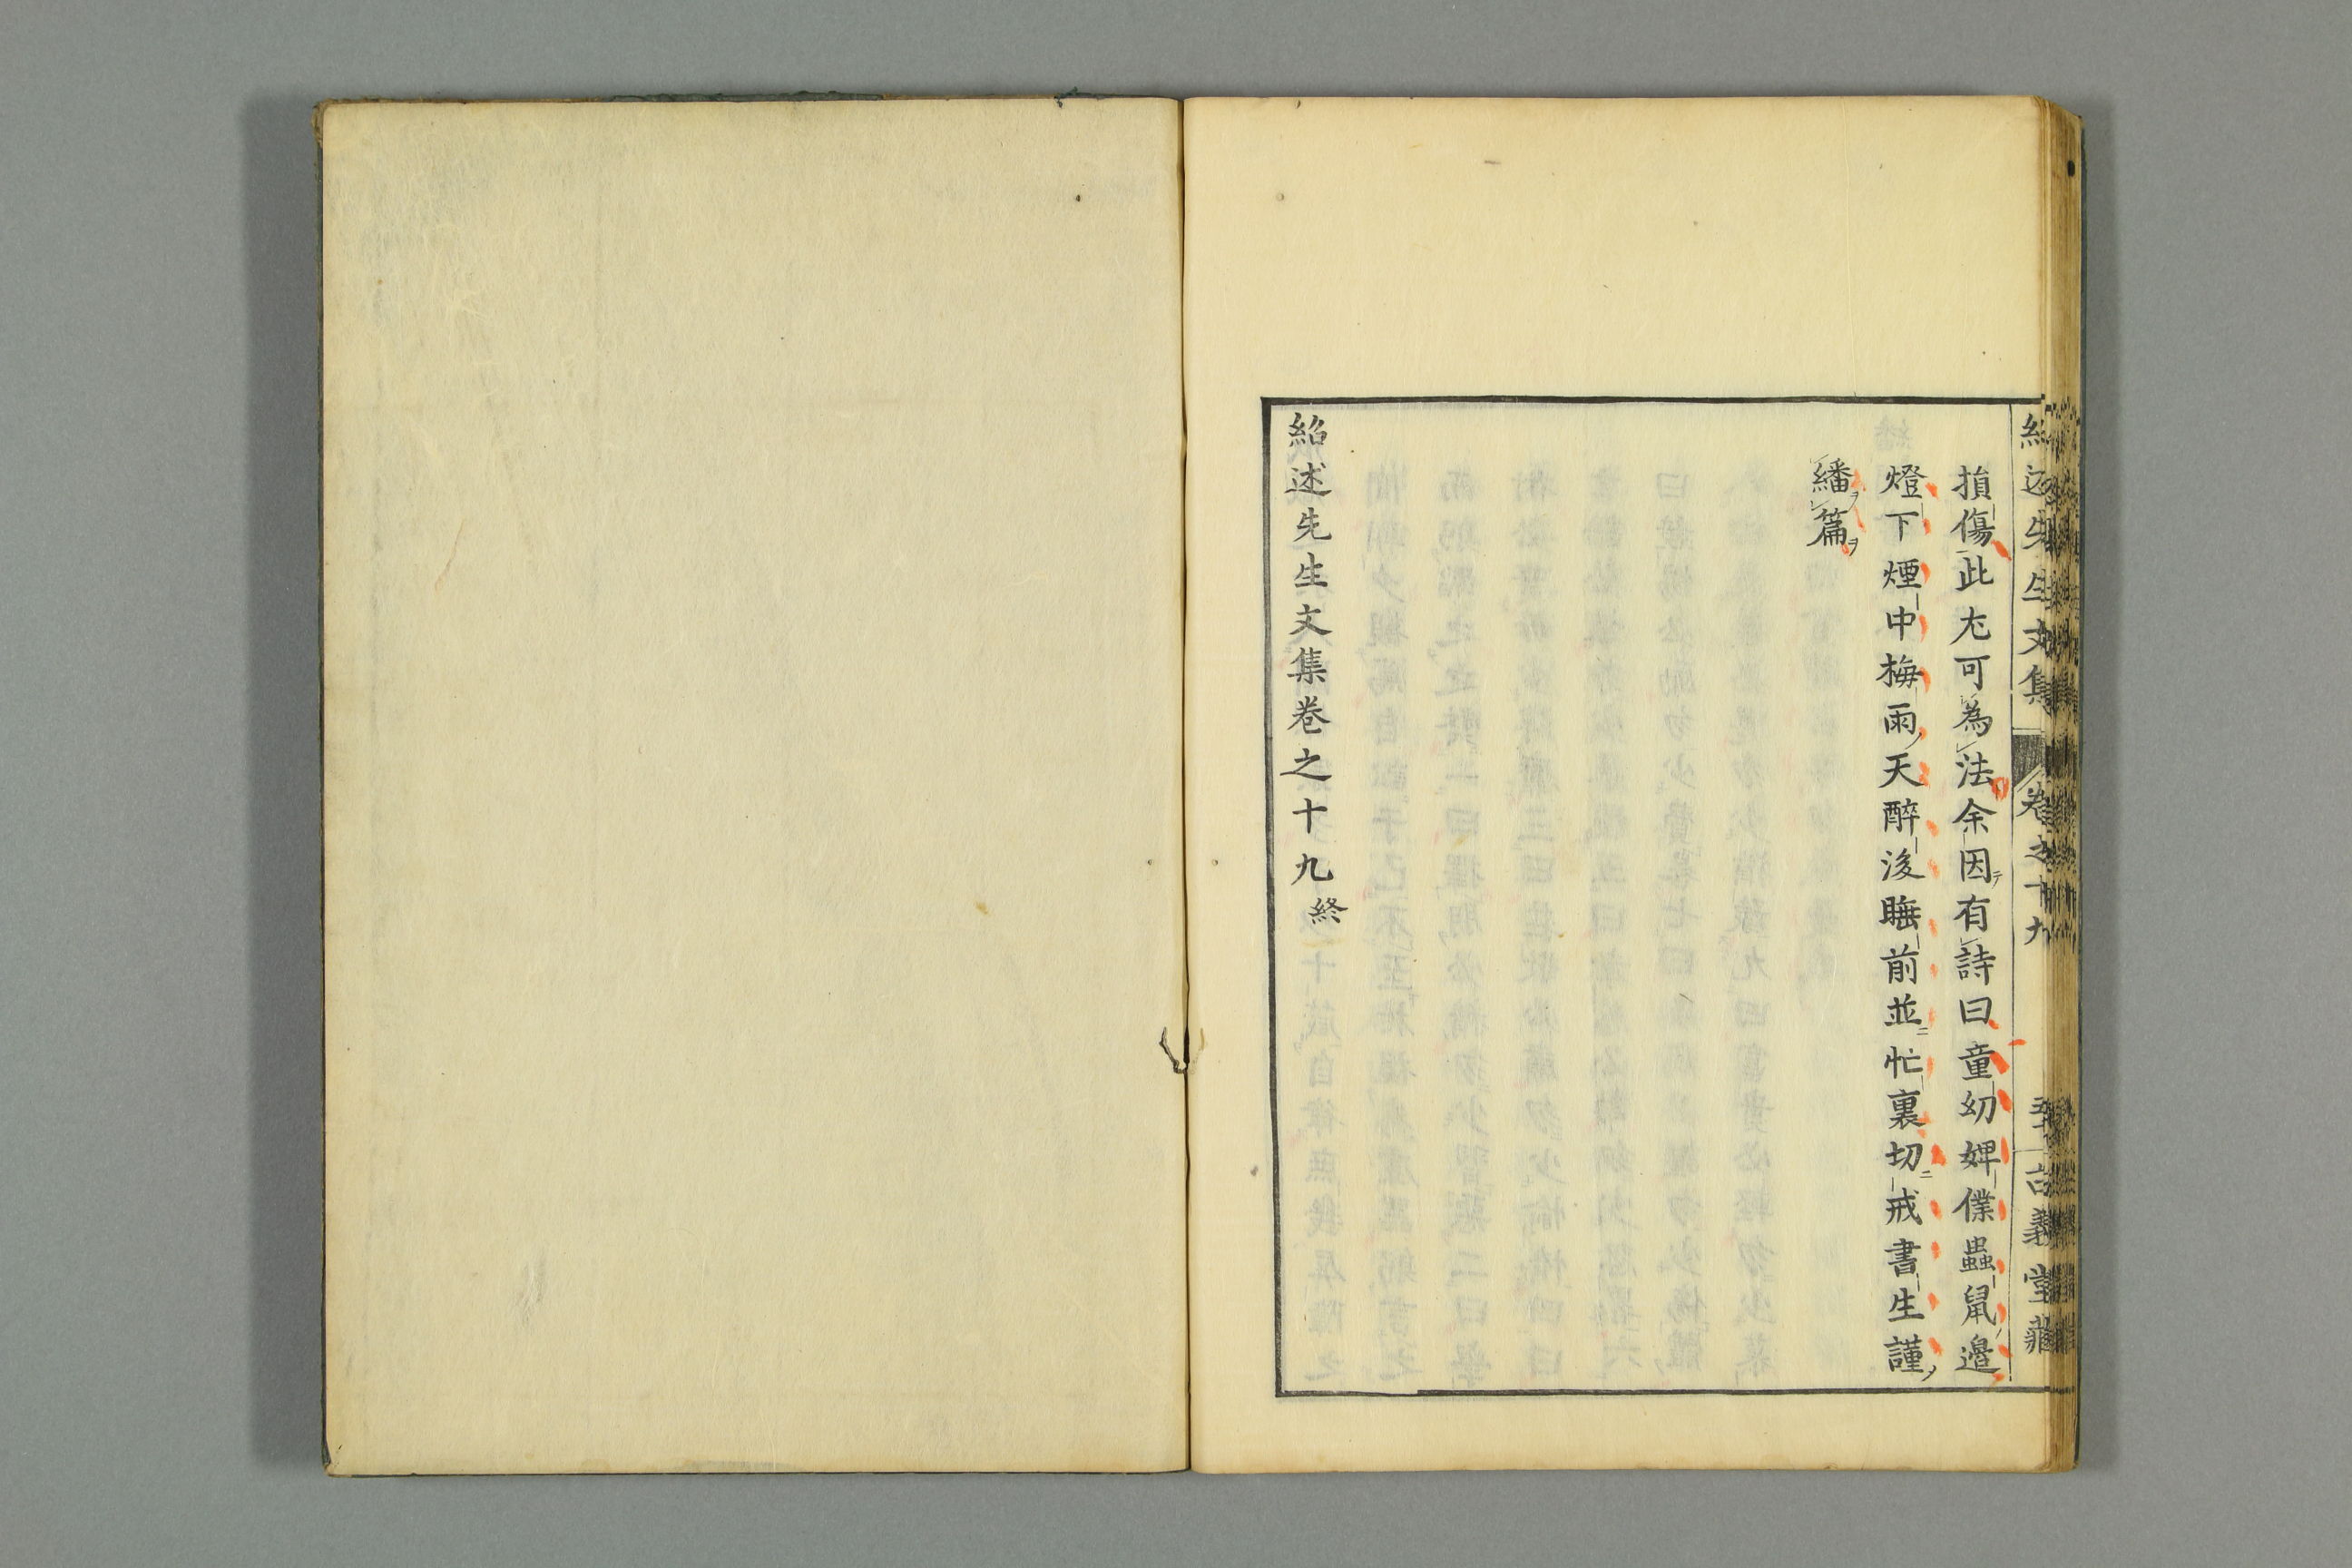 紹述先生文集 卷之十九 古義堂藏
損傷此尤可為法余因有詩曰童幼婢僕蟲鼠邉
燈下煙中梅雨天醉後睡前並忙裏切戒書生謹
繙篇
紹述先生文集卷之十九終